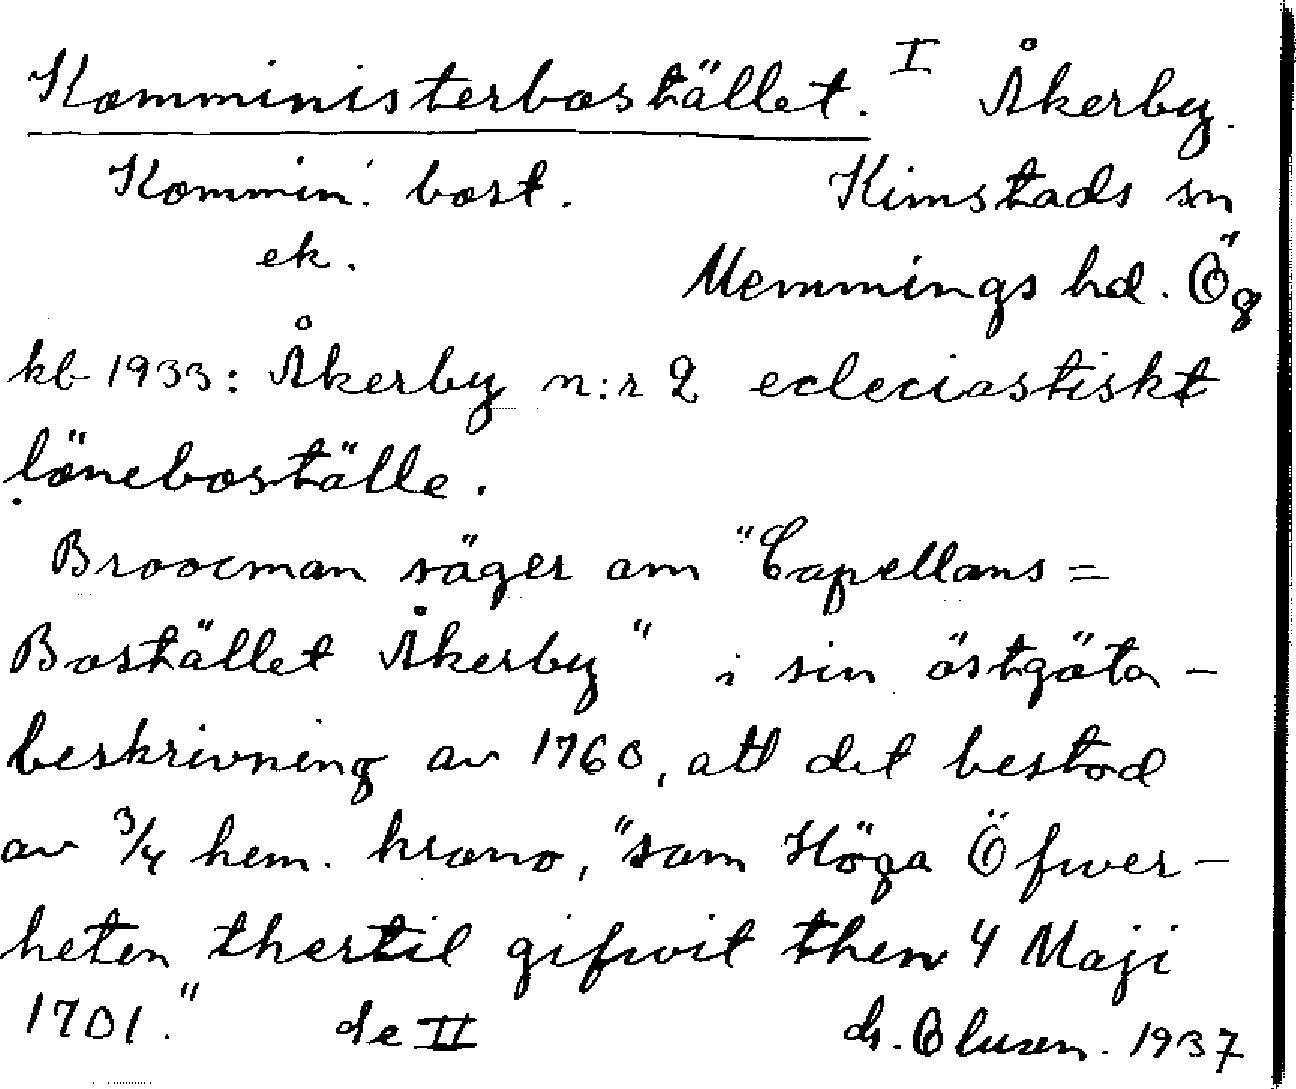 Komministerbostället. I Åkerby.
Kommin. bost. Kimstads sn
ek. Memmings hd. Ög
kb 1933: Åkerby n:r 2 ecleciastiskt
löneboställe.
Broocman säger om "Capellans=
Bostället Åkerby" i sin östgöta-
beskrivning av 1760, att det bestod
av 3/4 hem. krono, "som Höga Öfwer-
heten thertil gifwit then 4 Maji
1701." de II 1937